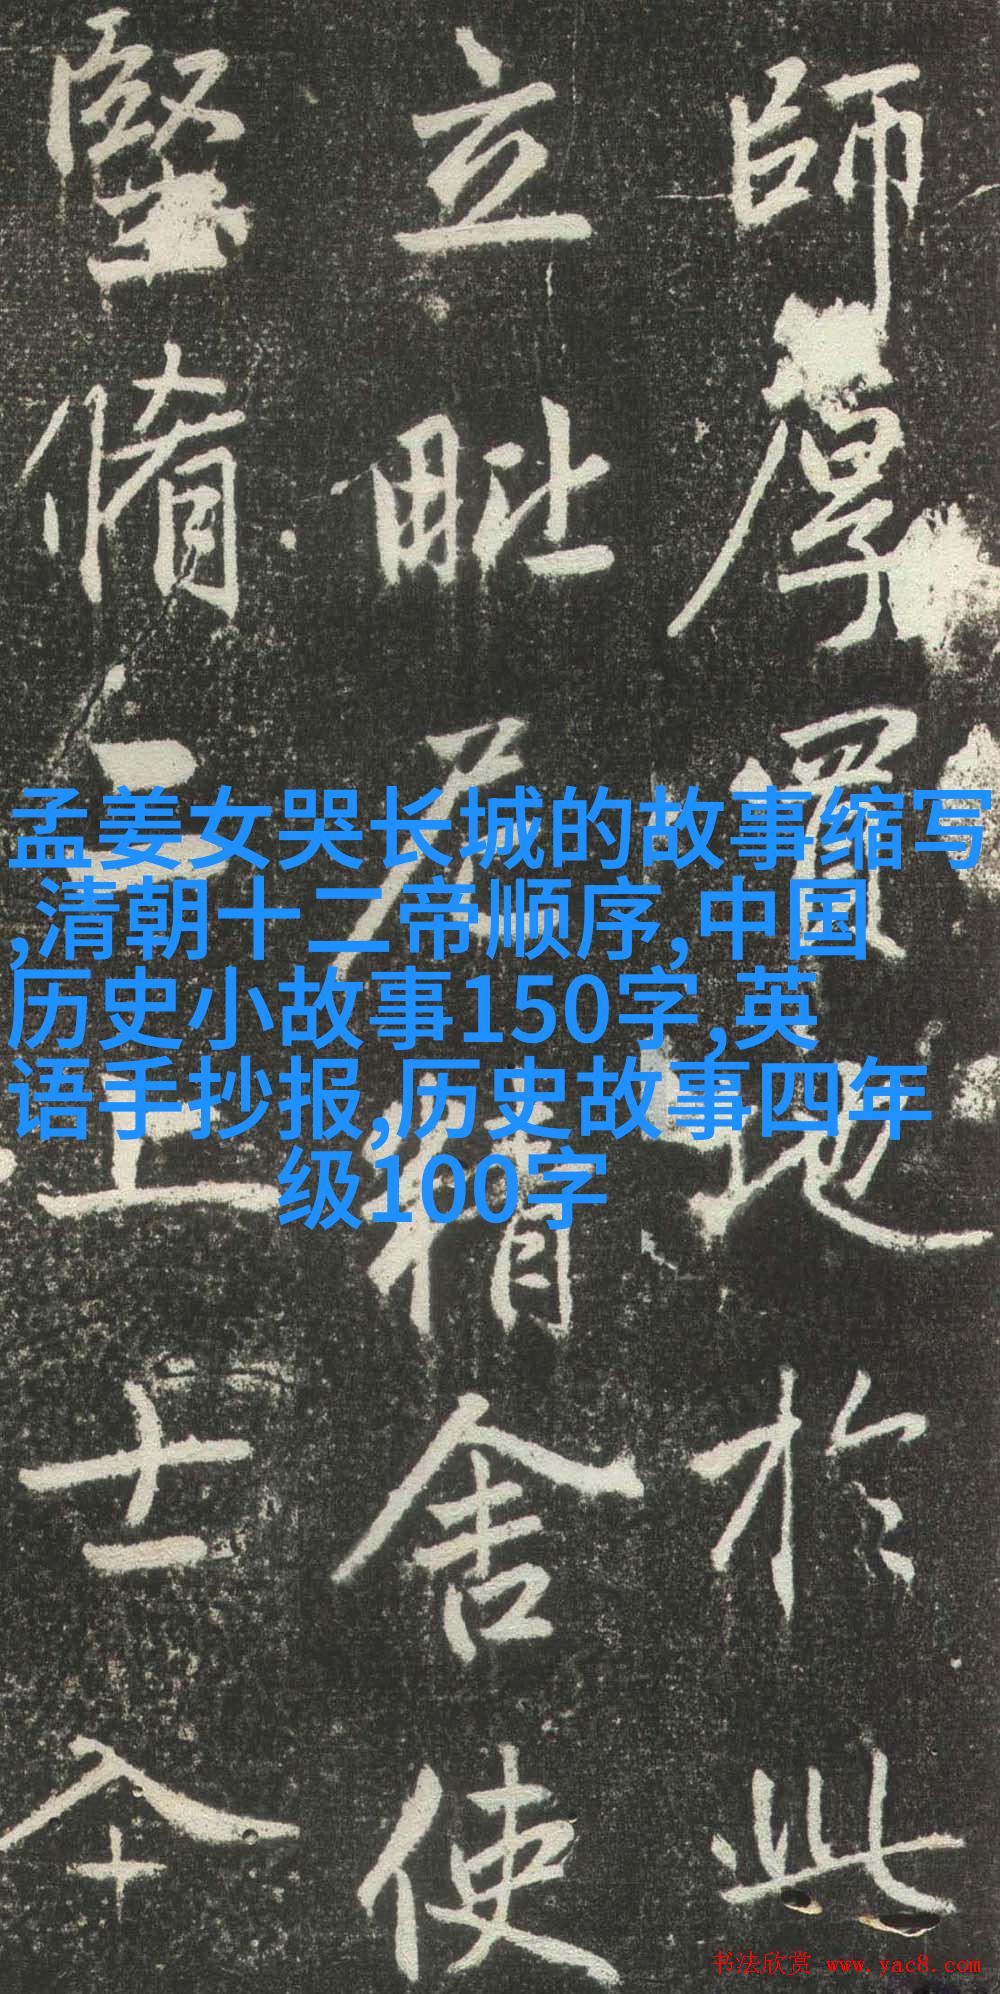 師厚地於此
立毗尼精舍使
堅脩
孟姜女哭长城的故事缩写
,清朝十二帝顺序,中国
历史小故事150字,英
语手抄报,历史故事四年
级100字
书法欣赏 www.yac8.com